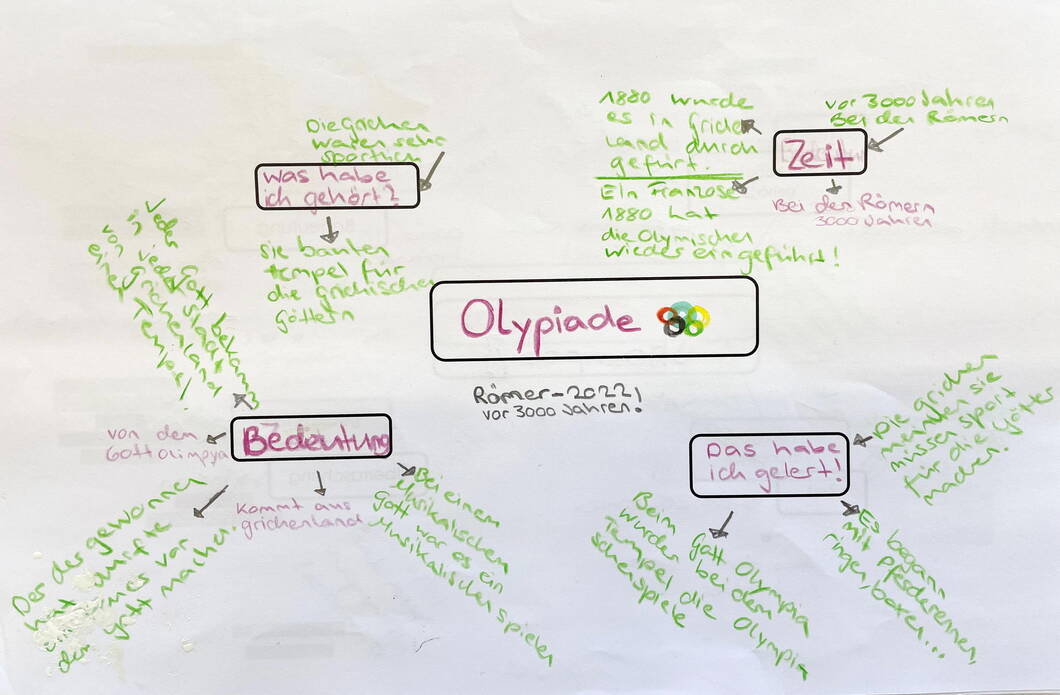 Olypiade
Römer-2022!
vor 3000 Jahren!
was habe
ich gehört?
Die Grichen
waren sehr
sportlich
sie bauten
tempel für
die grichischen
göttern
Zeit
1880 wurde
es in
Land durch
gefürt.
Ein Franzose
1880 hat
die Olymischen
wieder eingeführt!
vor 3000 Jahren
Bei den Römern
Bei den Römern
3000 Jahren
Bedeutung
Jeder Gott bekam
von jeder Stadt
in Grichenland
einen Tempel!
von dem
Gott Olimpya
Kommt aus
grichenland
Der der gewonnen
hat durfte
den
gott machen.
Bei einem
Musikalischen
Gott war es ein
Musikalischer spielen
Das habe
ich gelert!
Die grichen
meinten sie
müssen sport
für die götter
machen.
Beim Gott Olympia
wurden bei dem
Tempel die Olympia
scheispiele
Es begann
mit pferderennen,
ringen, boxen...